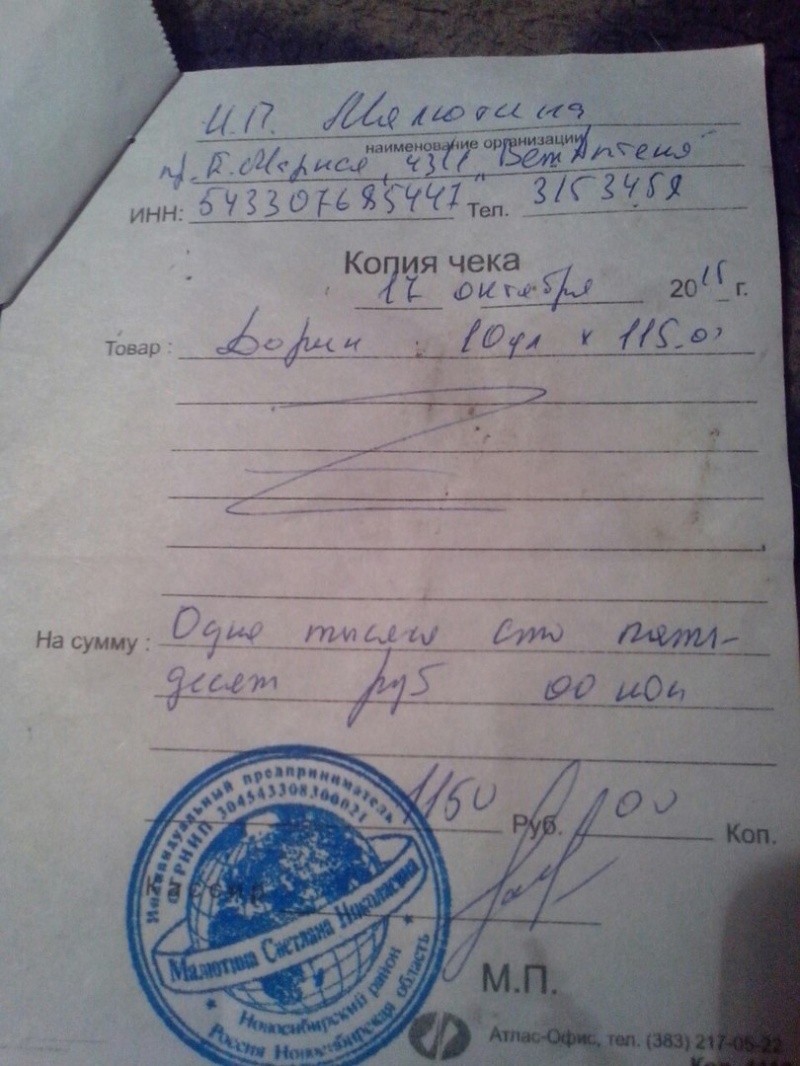 И.П. Малютина
наименование организации
пр. К. Маркса, 43/1 "ВетАптека"
ИНН: 543307685447 Тел. 3153458
Копия чека
17 октября 2015 г.
Товар : 10 х 115.0
На сумму : Одна тысяча сто пять-
десят руб 00 коп
1150 Руб. 00 Коп.
Кассир
М.П.
Индивидуальный предприниматель
ОГРНИП 304543308300021
Малютина Светлана Николаевна
Новосибирский район
Россия Новосибирская область
Атлас-Офис, тел. (383) 217-05-22